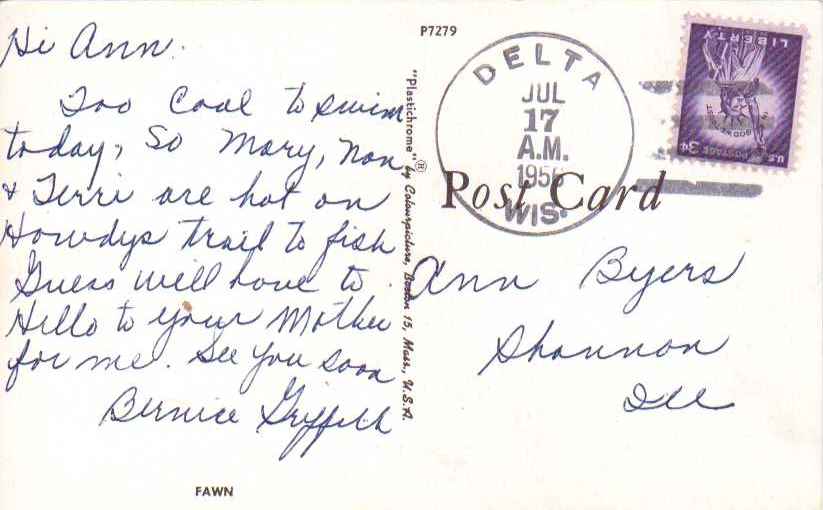 Hi Ann.
Too Cool to swim
today, So Mary, Nan
& Terri are hot on
Howdys trail to fish
Guess will have to.
Hello to your Mother
for me. See you soon
Bernice Griffith
FAWN
P7279
"Plastichrome"® by Colourpicture, Boston 15, Mass., U.S.A.
DELTA
JUL
17
A.M.
1956
WIS.
Post Card
LIBERTY
IN GOD WE TRUST
U.S. POSTAGE 3¢
Ann Byers
Shannon
Ill